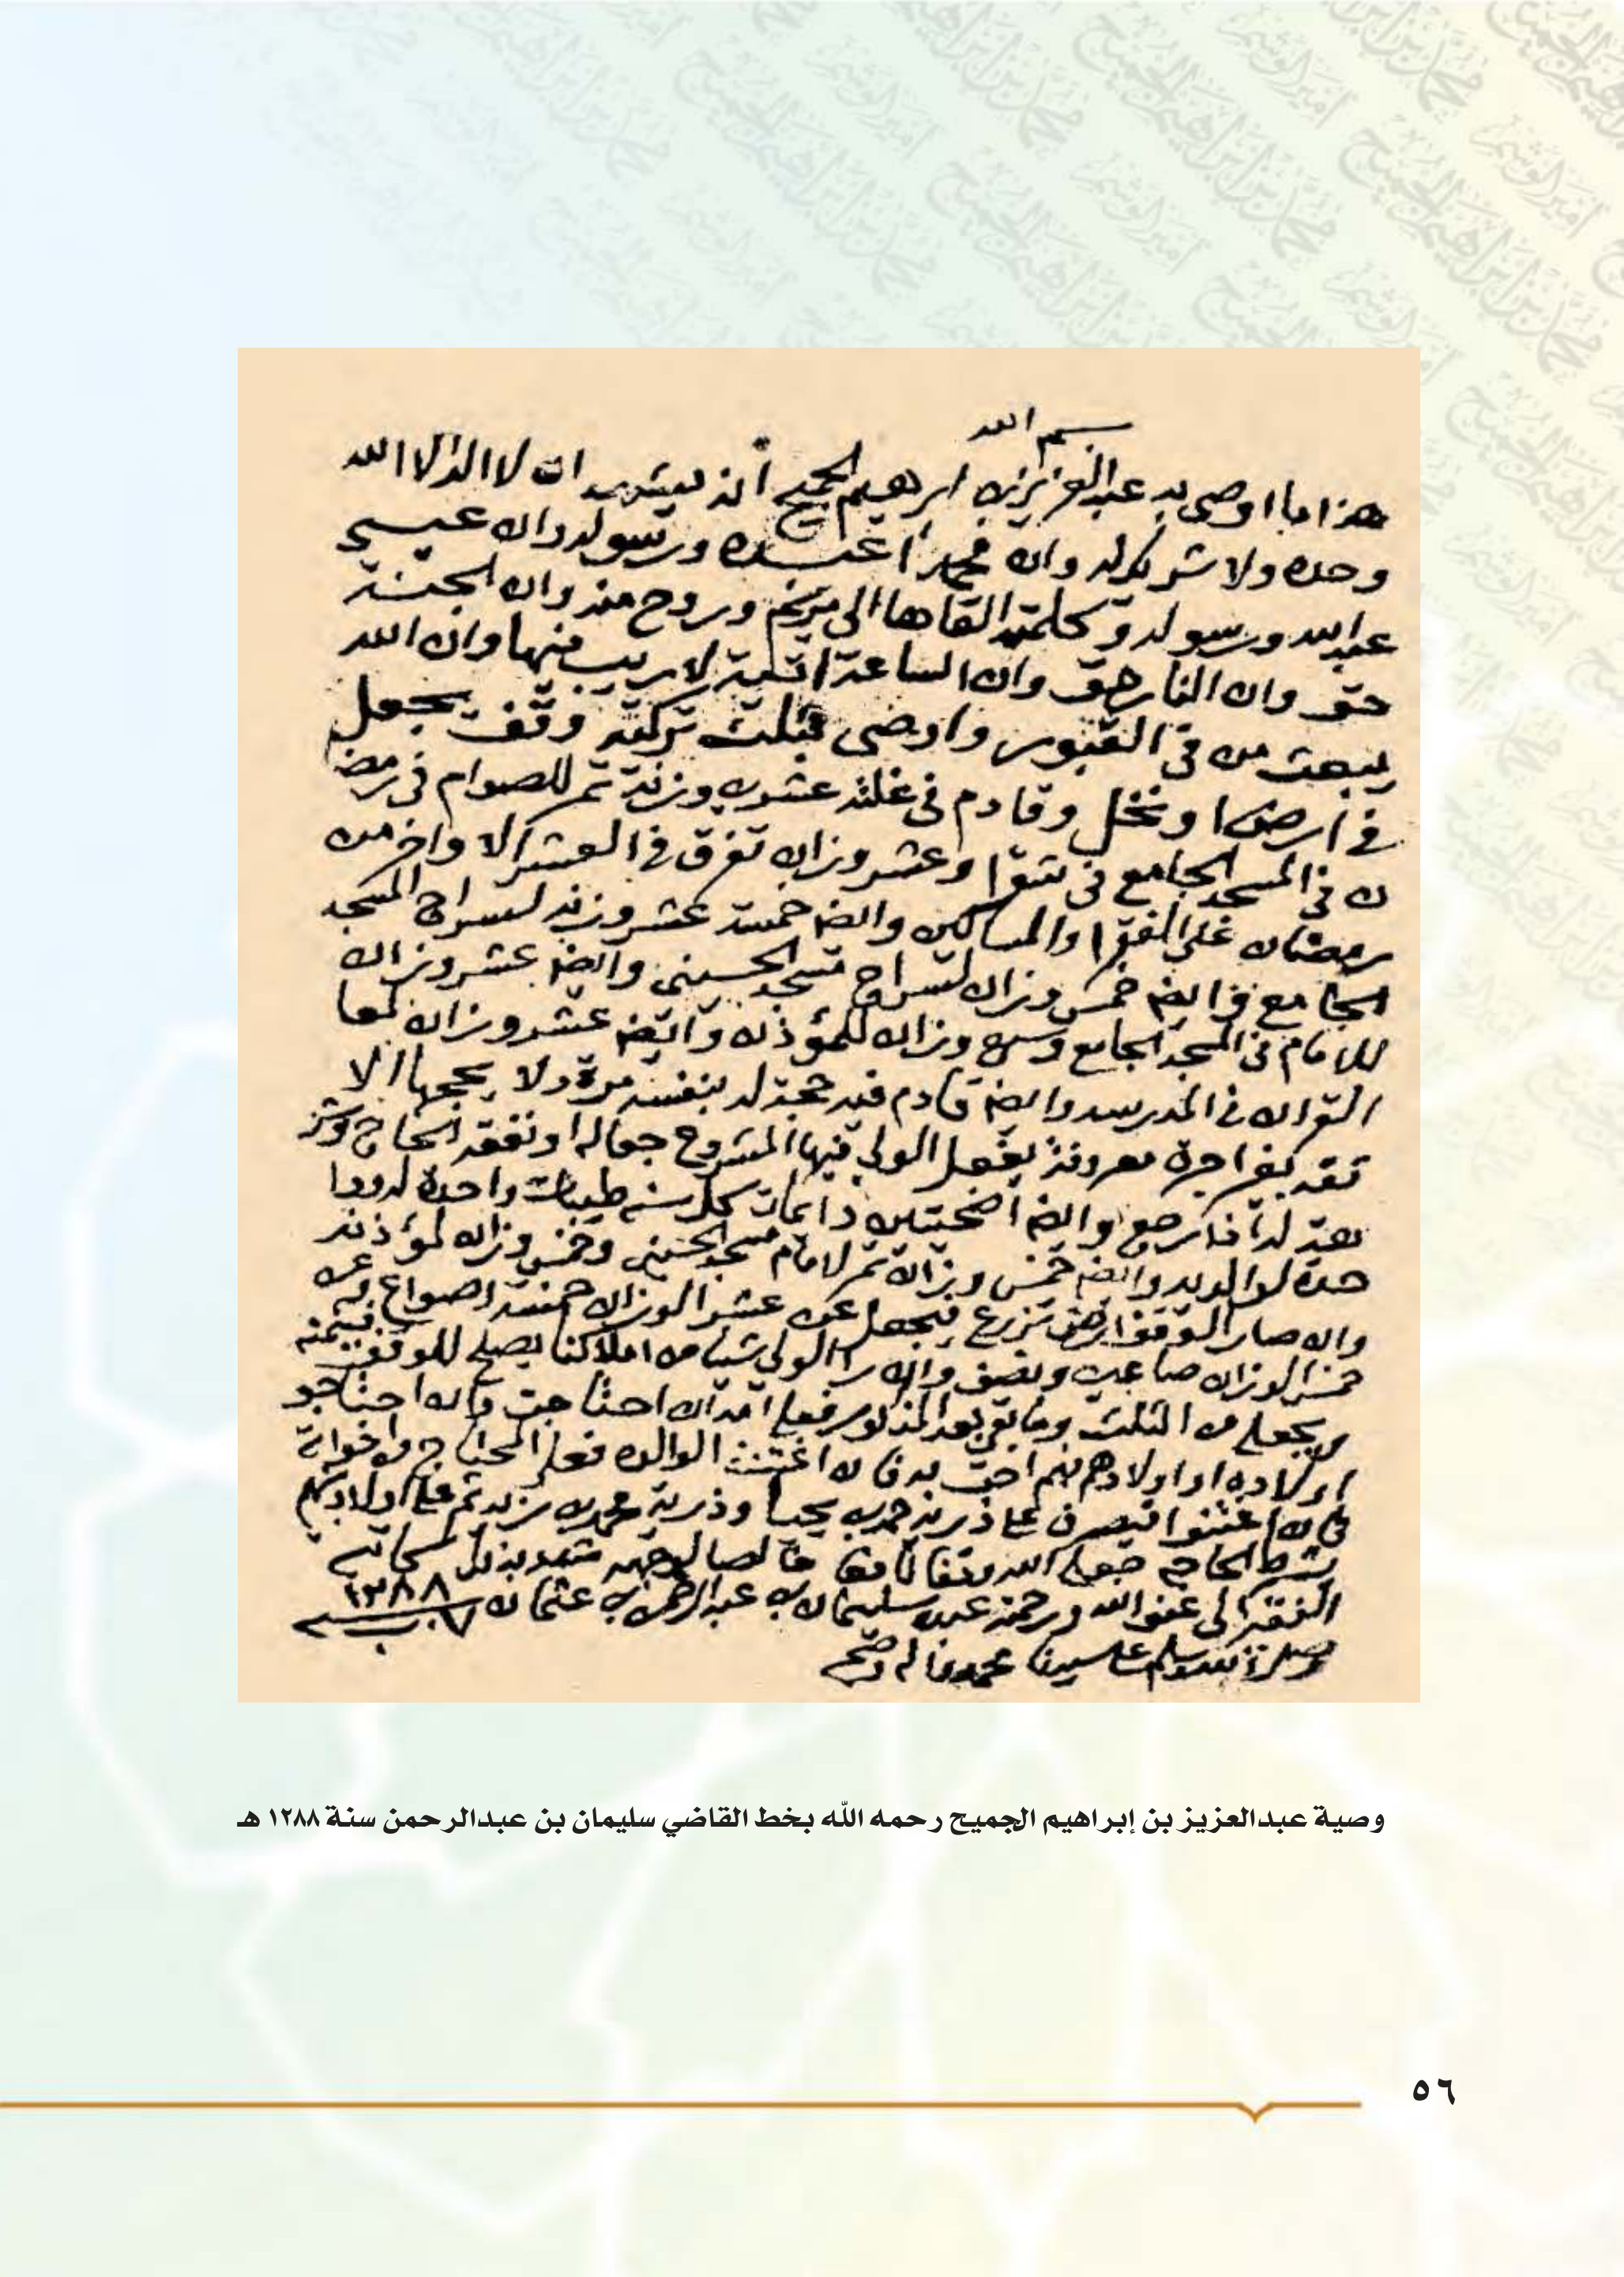 بسم الله
هذا ما اوصى به عبدالعزيز بن ابرهيم الجميح أنه يشهد ان لا اله الا الله
وحده ولا شريك له وان محمداً عبده ورسوله وان عيسى
عبدالله ورسوله وكلمته القاها الى مريم وروح منه وان الجنة
حق وان النار حق وان الساعة اتية لا ريب فيها وان الله
يبعث من في القبور واوصى بثلث تركته وقف يجعل
في ارض او نخل وقادم في غلته عشرين وزنة تمر للصوام في رمضا
ن في المسجد الجامع في شقرا وعشر وزان تفرق في العشر الاواخر من
رمضان على الفقرا والمساكين وايضا خمسة عشر وزنه لسراج المسجد
الجامع وايضا خمس وزان لسراج مسجد الحسيني وايضا عشر وزان
للامام في المسجد الجامع وخمس وزان للمؤذن وايضا عشر وزان لمعا
القران في المدرسه وايضا قادم فيه حجة له بنفسه مرة ولا يحجها الا
ثقه بغير اجرة معروفة يفعل الولي فيها المشروع جعاله او نفقة الحاج
له اذا رجع وايضا اضحيتين دايمات كل سنه طيبات واحدة له ووا
حدة لوالديه وايضا خمس وزان تمر لامام مسجد الحسيني وخمس وزان لمؤذنه
وان صار الوقف ارض تزرع فيجعل عن عشر الوزان خمسة اصواع بر عن
خمس الوزان صاعين ونصف وان را الولي شيا من املاكنا يصلح للوقف فيثمنه
ويجعل من الثلث وما بقي بعد المذكور فعلى امه ان احتاجت وان احتاجو
اولاده او اولادهم فهم احق به فان اغتنت الوالده فعلى المحتاج من اخوانه
فان اغتنوا فيصرف على ذرية حمد بن يحيا وذرية محمد بن زيد ثم على اولادهم
بشرط الحاجه جعله الله وقفا نافعا خالصا لوجهه شهد بذلك كاتبه
الفقير الى عفو الله ورحمته عبده سليمان بن عبدالرحمن بن عثمان ١٢٨٨
وصلى الله وسلم على سيدنا محمد واله وصحبه
وصية عبدالعزيز بن إبراهيم الجميح رحمه الله بخط القاضي سليمان بن عبدالرحمن سنة ١٢٨٨ هـ
٥٦